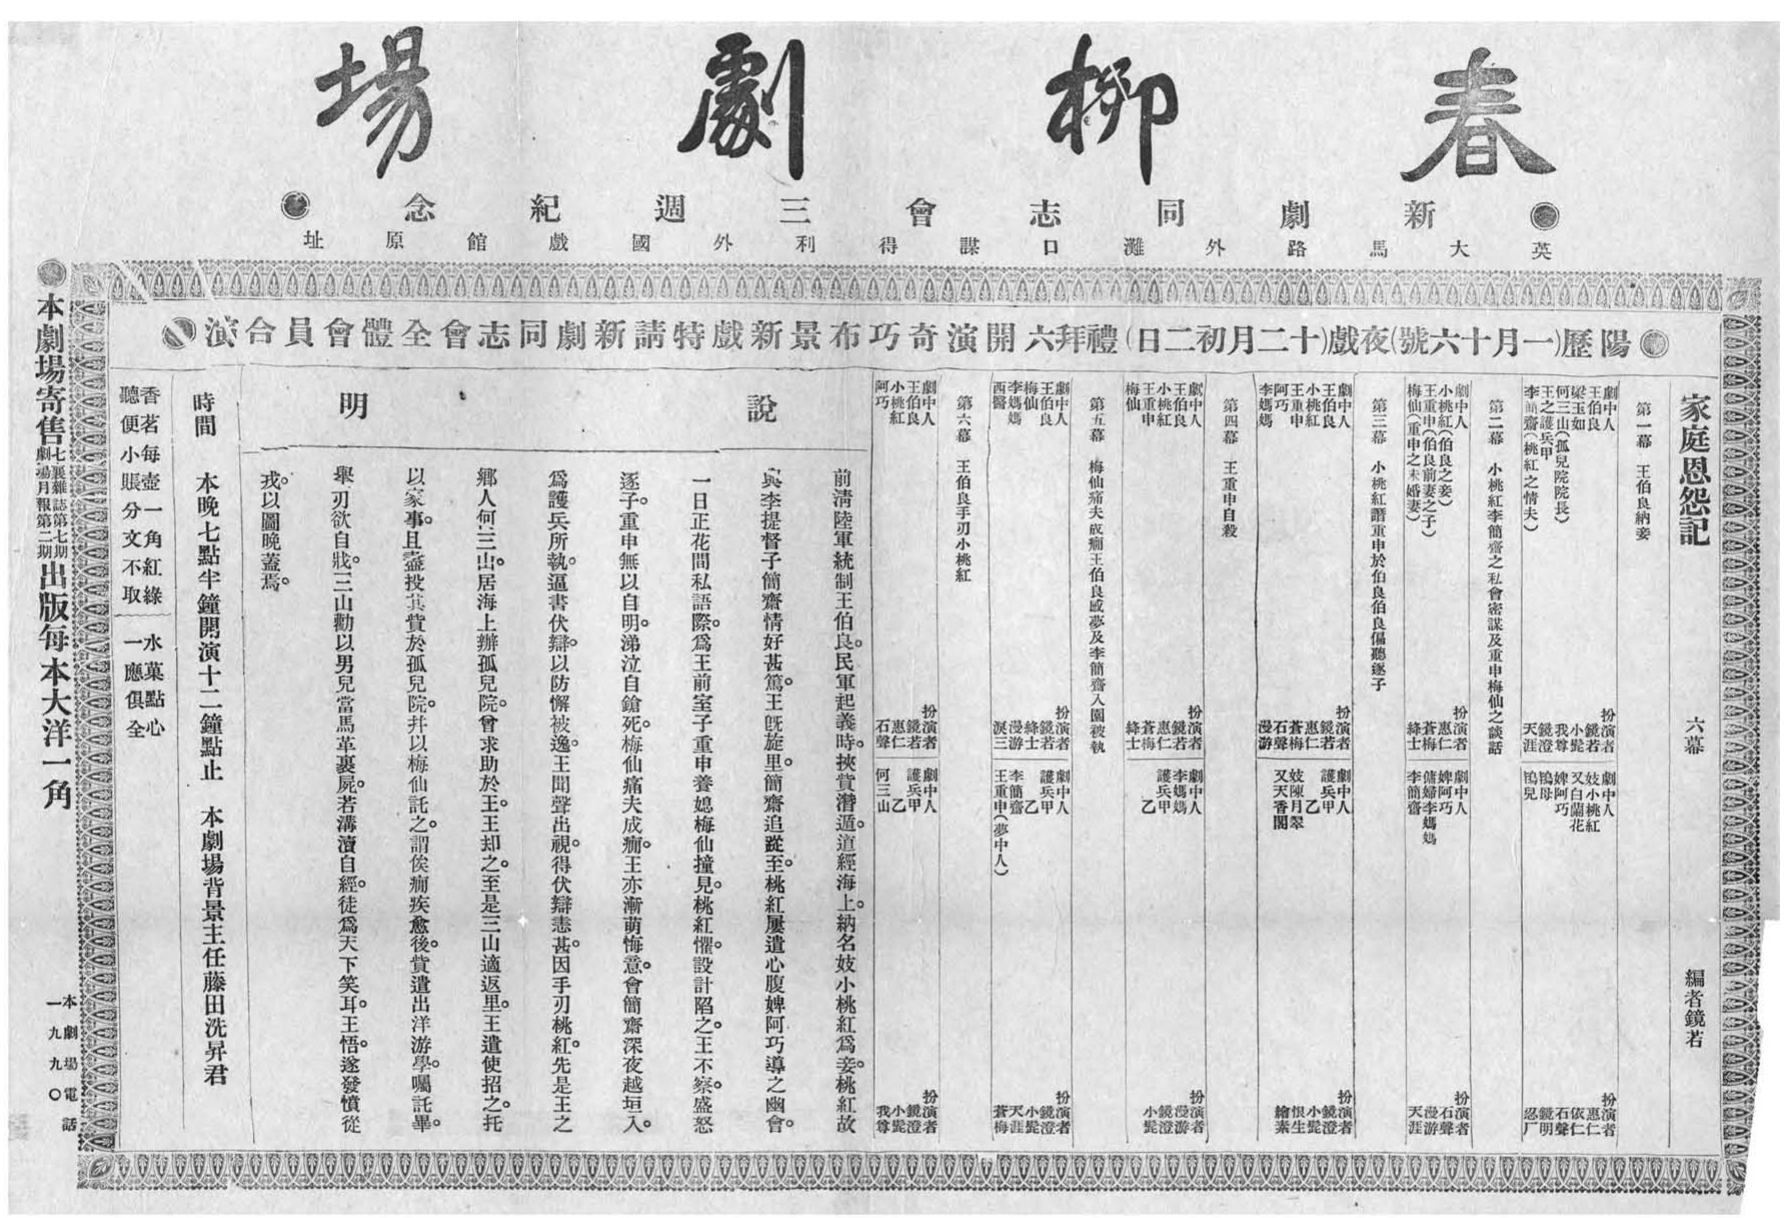 春柳劇場
新劇同志會三週紀念
英大馬路外灘口謀得利外國戲館原址
陽歷(一月十六號)夜戲(十二月初二日)禮拜六開演奇巧布景新戲特請新劇同志會全體會員合演
家庭恩怨記 六幕 編者鏡若
第一幕 王伯良納妾
劇中人 扮演者 劇中人 扮演者
王伯良 鏡若 妓小桃紅 惠仁
梁玉如 小髭 又白蘭花 依仁
何三山(孤兒院院長) 我尊 婢阿巧 石聲
王之護兵甲 鏡澄 鴇母 鏡明
李簡齋(桃紅之情夫) 天涯 鴇兒 忍厂
第二幕 小桃紅李簡齋之私會密謀及重申梅仙之談話
劇中人 扮演者 劇中人 扮演者
小桃紅(伯良之妾) 惠仁 婢阿巧 石聲
王重申(伯良前妻之子) 蒼梅 傭婦李媽媽 漫游
梅仙(重申之未婚妻) 絳士 李簡齋 天涯
第三幕 小桃紅譖重申於伯良伯良偏聽逐子
劇中人 扮演者 劇中人 扮演者
王伯良 鏡若 護兵甲 鏡澄
小桃紅 惠仁 乙 小髭
王重申 蒼梅 妓陳月翠 恨生
阿巧 石聲 又天香閣 繪素
李媽媽 漫游
第四幕 王重申自殺
劇中人 扮演者 劇中人 扮演者
王伯良 鏡若 李媽媽 漫游
小桃紅 惠仁 護兵甲 鏡澄
王重申 蒼梅 乙 小髭
梅仙 絳士
第五幕 梅仙痛夫成癇王伯良感夢及李簡齋入園被執
劇中人 扮演者 劇中人 扮演者
王伯良 鏡若 護兵甲 鏡澄
梅仙 絳士 乙 小髭
李媽媽 漫游 李簡齋 天涯
西醫 淚三 王重申(夢中人) 蒼梅
第六幕 王伯良手刃小桃紅
劇中人 扮演者 劇中人 扮演者
王伯良 鏡若 護兵甲 鏡澄
小桃紅 惠仁 乙 小髭
阿巧 石聲 何三山 我尊
說明
前清陸軍統制王伯良。民軍起義時。挾貲潛遁。道經海上。納名妓小桃紅爲妾。桃紅故
與李提督子簡齋情好甚篤。王旣旋里。簡齋追蹤至。桃紅屢遣心腹婢阿巧導之幽會。
一日正花間私語際。爲王前室子重申養媳梅仙撞見。桃紅懼。設計陷之。王不察。盛怒
逐子。重申無以自明。涕泣自鎗死。梅仙痛夫成癇。王亦漸萌悔意。會簡齋深夜越垣入。
爲護兵所執。逼書伏辯。以防懈被逸。王聞聲出視。得伏辯恚甚。因手刃桃紅。先是王之
鄉人何三山。居海上辦孤兒院。曾求助於王。王却之。至是三山適返里。王遣使招之。托
以家事。且盡投其貲於孤兒院。幷以梅仙託之。謂俟癇疾愈後。貲遣出洋游學。囑託畢。
舉刃欲自戕。三山勸以男兒當馬革裹屍。若溝瀆自經。徒爲天下笑耳。王悟。遂發憤從
戎。以圖晚蓋焉。
時間 本晚七點半鐘開演十二鐘點止 本劇場背景主任藤田洗身君
香茗每壺一角紅綠 水菓點心
聽便小賬分文不取 一應俱全
本劇場寄售七襄雜誌第七期劇場月報第二期出版每本大洋一角
本劇場電話
一九九〇